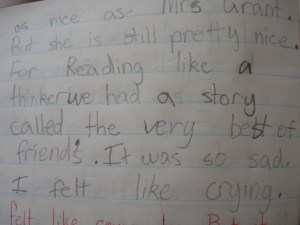 as nice as Mrs Grant.
But she is still pretty nice.
For Reading like a
thinker we had a story
called the very best of
friends. It was so sad.
I felt like crying.
felt like